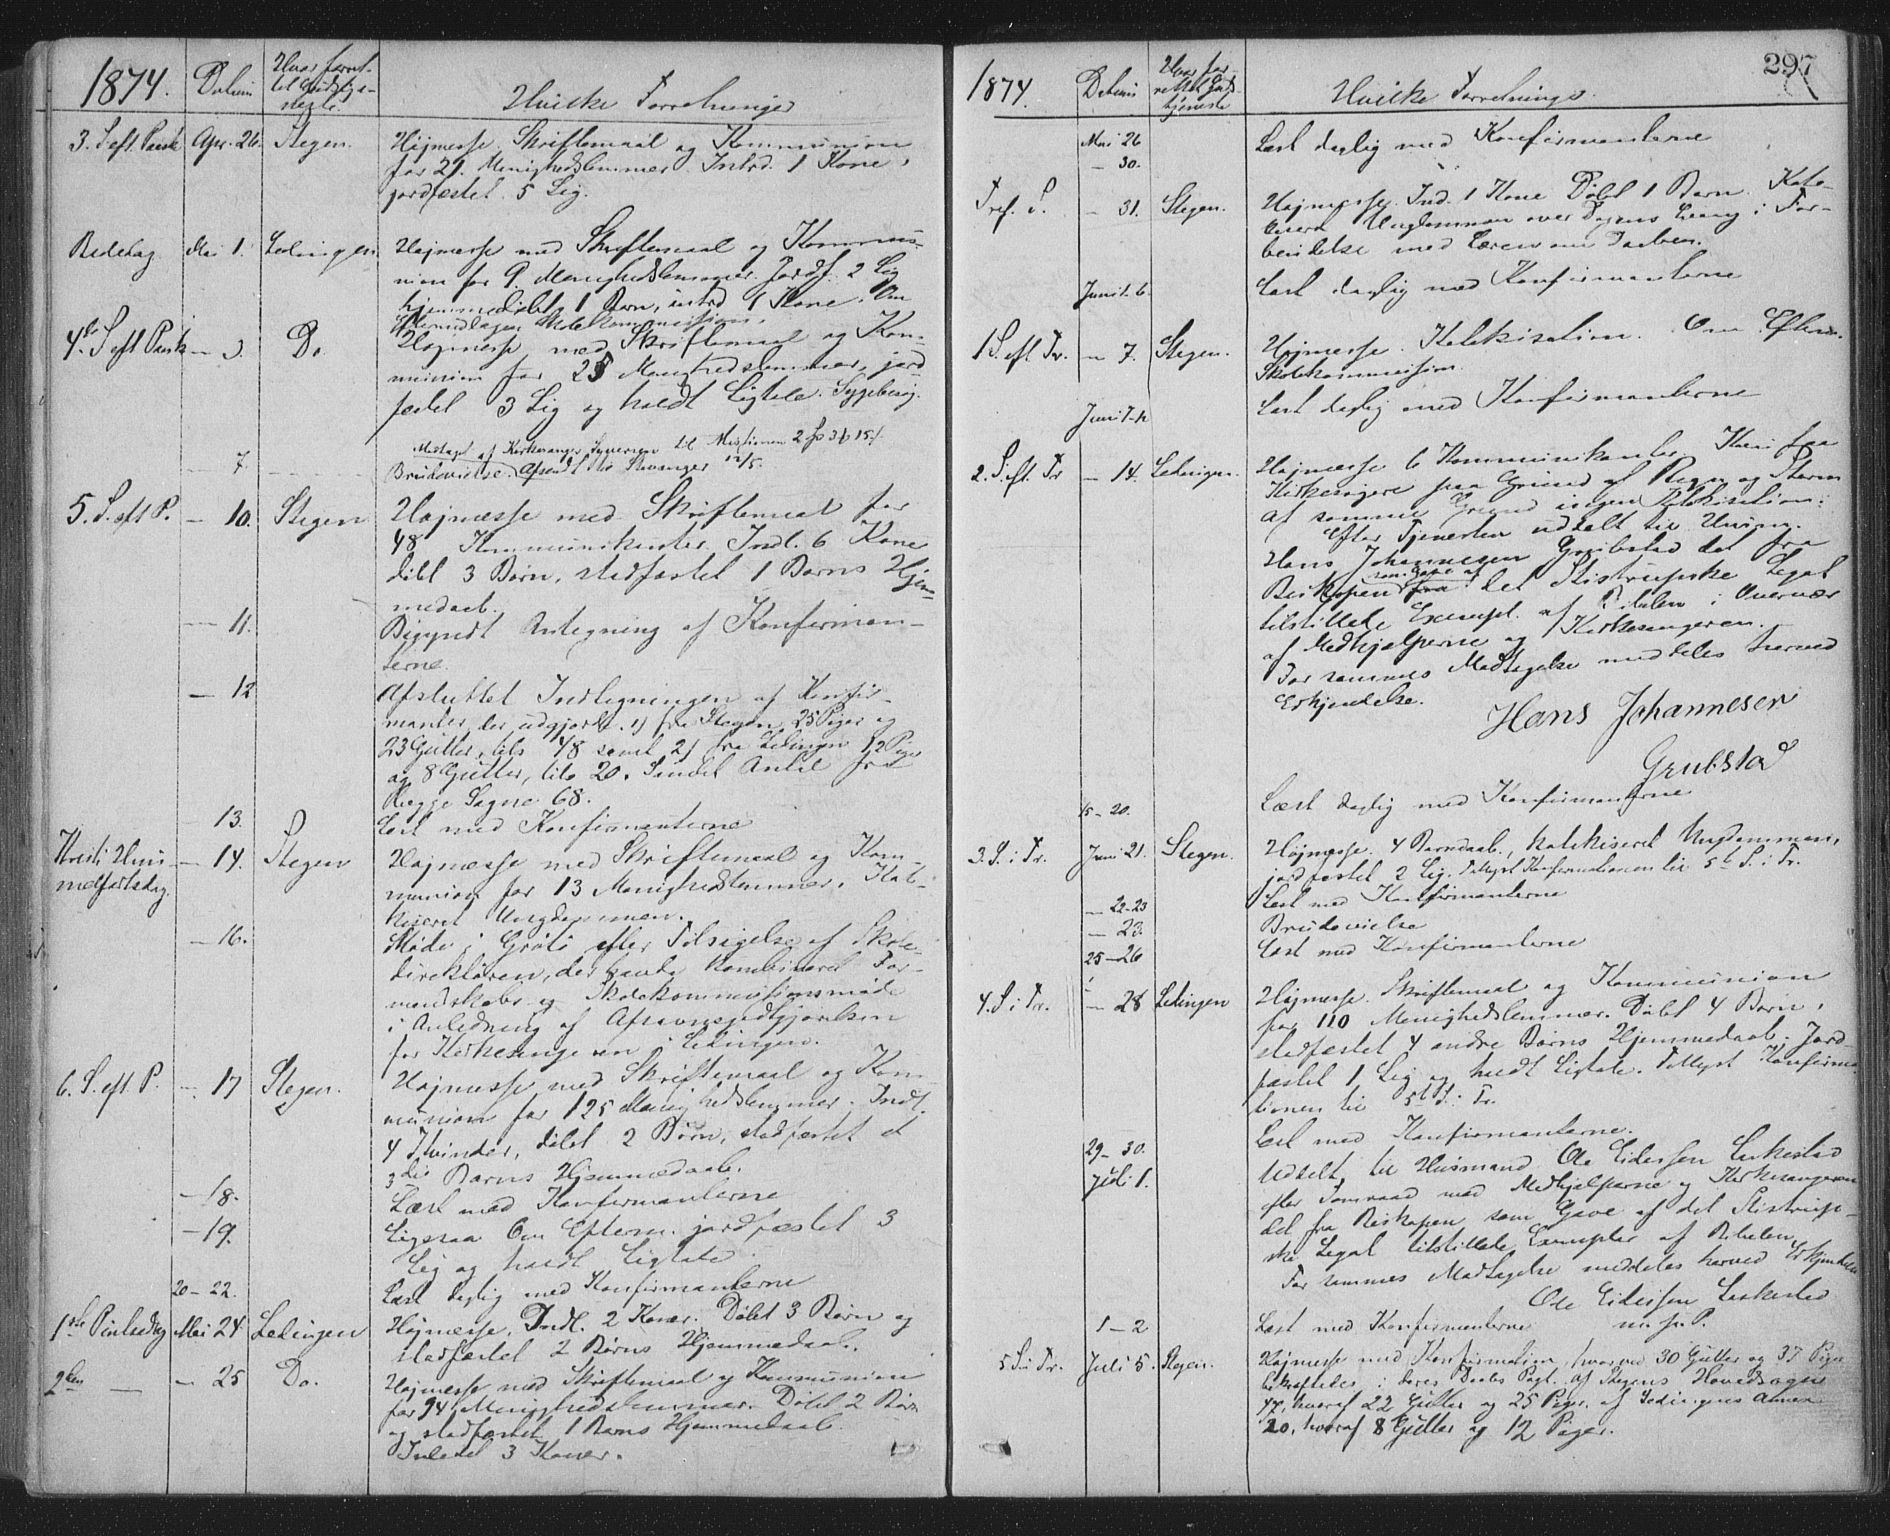 1874. Datum Hvor forret-
til Gudstje-
neste. Hvilke Forretninger
3. S. eft. Paask Apr. 26. Stegen. Højmesse. Skriftemaal og Kommunion
for 21. Menighedslemmer. Intrd. 1 Kone,
jordfæstet 5 Lig.
Bededag Mai 1. Ledingen. Højmesse med Skriftemaal og Kommu-
nion for 9. Menighedslemmer. Jordf. 2 Lig
hjemmedøbt 1 Barn, intrd 1 Kone. Om
Eftermidagen Skolekommission.
4de S. eft Paask — 3. Do Højmesse med Skriftemaal og Kom-
munion for 25 Menighedslemmer, jord
fæstet 3 Lig og holdt Ligtale. Sygebesøg.
Modtaget af Kirkesanger Syversen til Missionen 2 Sp 3 ß 15 /.
— 7. — Brudevielse. Afsendt til Stavanger 12/5.
5. S. eft P. — 10. Stegen Højmesse med Skriftemaal for
48 Kommunikanter. Indl. 6 Kone
døbt 3 Børn, stadfæstet 1 Barns Hjem-
medaab.
— 11. Begyndt Antegning af Konfirman-
terne.
— 12 Afsluttet Indtegningen af Konfir-
manter, der udgjorde. 1) fra Stegen 25 Piger og
23 Gutter, tils 48 samt 2) fra Ledingen 12 Piger
og 8 Gutter, tils 20. Samlet Antal fra
Begge Sogne 68.
— 13. Læst med Konfirmanterne
Kristi Him- — 14. Stegen Højmesse med Skriftemaal og Kom-
melfartsdag. munion for 13 Menighedslemmer. Kat-
kiseret Ungdommen.
— 16. Møde i Grøtø efter Tilsigelse af Skole-
direktøren, der havde kombineret For-
mandskabs og Skolekommissionsmøde
i Anledning af Afsavnsgodtgjørelsen
for Kirkesangeren i Ledingen.
6. S. eft. P. — 17 Stegen. Højmesse med Skriftemaal og Kom
munion for 125 Menighedslemmer. Indl.
4 Kvinder, døbt 2 Børn, stadfæstet et
3die Barns Hjemmedaab.
— 18. Læst med Konfirmanterne
— 19. Ligesaa Om Efterm. jordfæstet 3
Lig og holdt Ligtale
20—22. Læst daglig med Konfirmanterne
1ste Pintsedag Mai 24 Ledingen Højmesse. Indl. 2 Koner. Døbt 3 Børn og
stadfæstet 2 Børns Hjemmedaab.
2den — — 25 Do. Højmesse med Skriftemaal og Kommunion
for 94 Menighedslemmer. Døbt 2 Børn
og stadfæstet 1 Barns Hjemmedaab
Inledet 3 Koner.
297
1874. Datum Hvor for-
rettet Guds-
tjeneste Hvilke Forretninger.
Mai 26 Læst daglig med Konfirmanterne
— 30.
Tref. S. — 31. Stegen. Højmesse. Ind. 1 Kone Døbt 1 Barn. Kate-
kiseret Ungdommen over Dagens Evang i For-
bindelse med Læren om Daaben.
Juni 1-6. Læst daglig med Konfirmanterne
1 S. eft Tr. — 7. Stegen. Højmesse. Katekisation. Om Efterm.
Skolekommission.
Juni Læst daglig med Konfirmanterne
2. S. eft. Tr — 14. Ledingen. Højmesse 6 Kommunikanter. Kun faa
Kirkesøgere paa Grund af Regn og Storm
af samme Grund ingen Katekisation.
Efter Tjenesten uddelt til Husm.
Hans Johannesen Grubstad det fra
Biskopen som Gave af det Stistrupske Legat
tilstillede Exempl. af Bibelen i Overvær
af Medhjælperne og Kirkesangeren.
For sammes Modtagelse meddeles herved
Erkjendelse.
Hans Johannesen
Grubstad
15—20. Læst daglig med Konfirmanterne
3. S. i Tr. Juni 21. Stegen. Højmesse. 4 Barndaab, katekiseret Ungdommen,
jordfæstet 2 Lig. Tillyst Konfirmationen til 5te S. i Tr.
— 22-23 Læst med Konfirmanterne
— 23. Brudevielse
25—26 Læst med Konfirmanterne
4. S. i Tr. — 28 Ledingen Højmesse. Skriftemaal og Kommunion
for 110 Menighedslemmer. Døbt 4 Børn,
stadfæstet 4 andre Børns Hjemmedaab. Jord-
fæstet 1 Lig og holdt Ligtale. Tillyst Konfirma
tionen til 5te S. i Tr.
29—30. Læst med Konfirmanterne.
Juli 1. Uddelt til Husmand Ole Eidessen Leskestad
efter Samraad med Medhjælperne og Kirkesangeren
det fra Biskopen som Gave af det Stistrup-
ske Legat tilstillede Exemplar af Bibelen.
For sammes Modtagelse meddeles herved Erkjendelse
Ole Eidessen Leskestad
1—2 Læst med Konfirmanterne m. p. P.
5 S. i Tr. Juli 5. Stegen. Højmesse med Konfirmation, hvorved 30 Gutter og 37 Piger
bekræftedes i deres Daabs Pagt. af Stegens Hovedsogn
47, hvoraf 22 Gutter og 25 Piger, af Ledingens Annex
20, hvoraf 8 Gutter og 12 Piger.